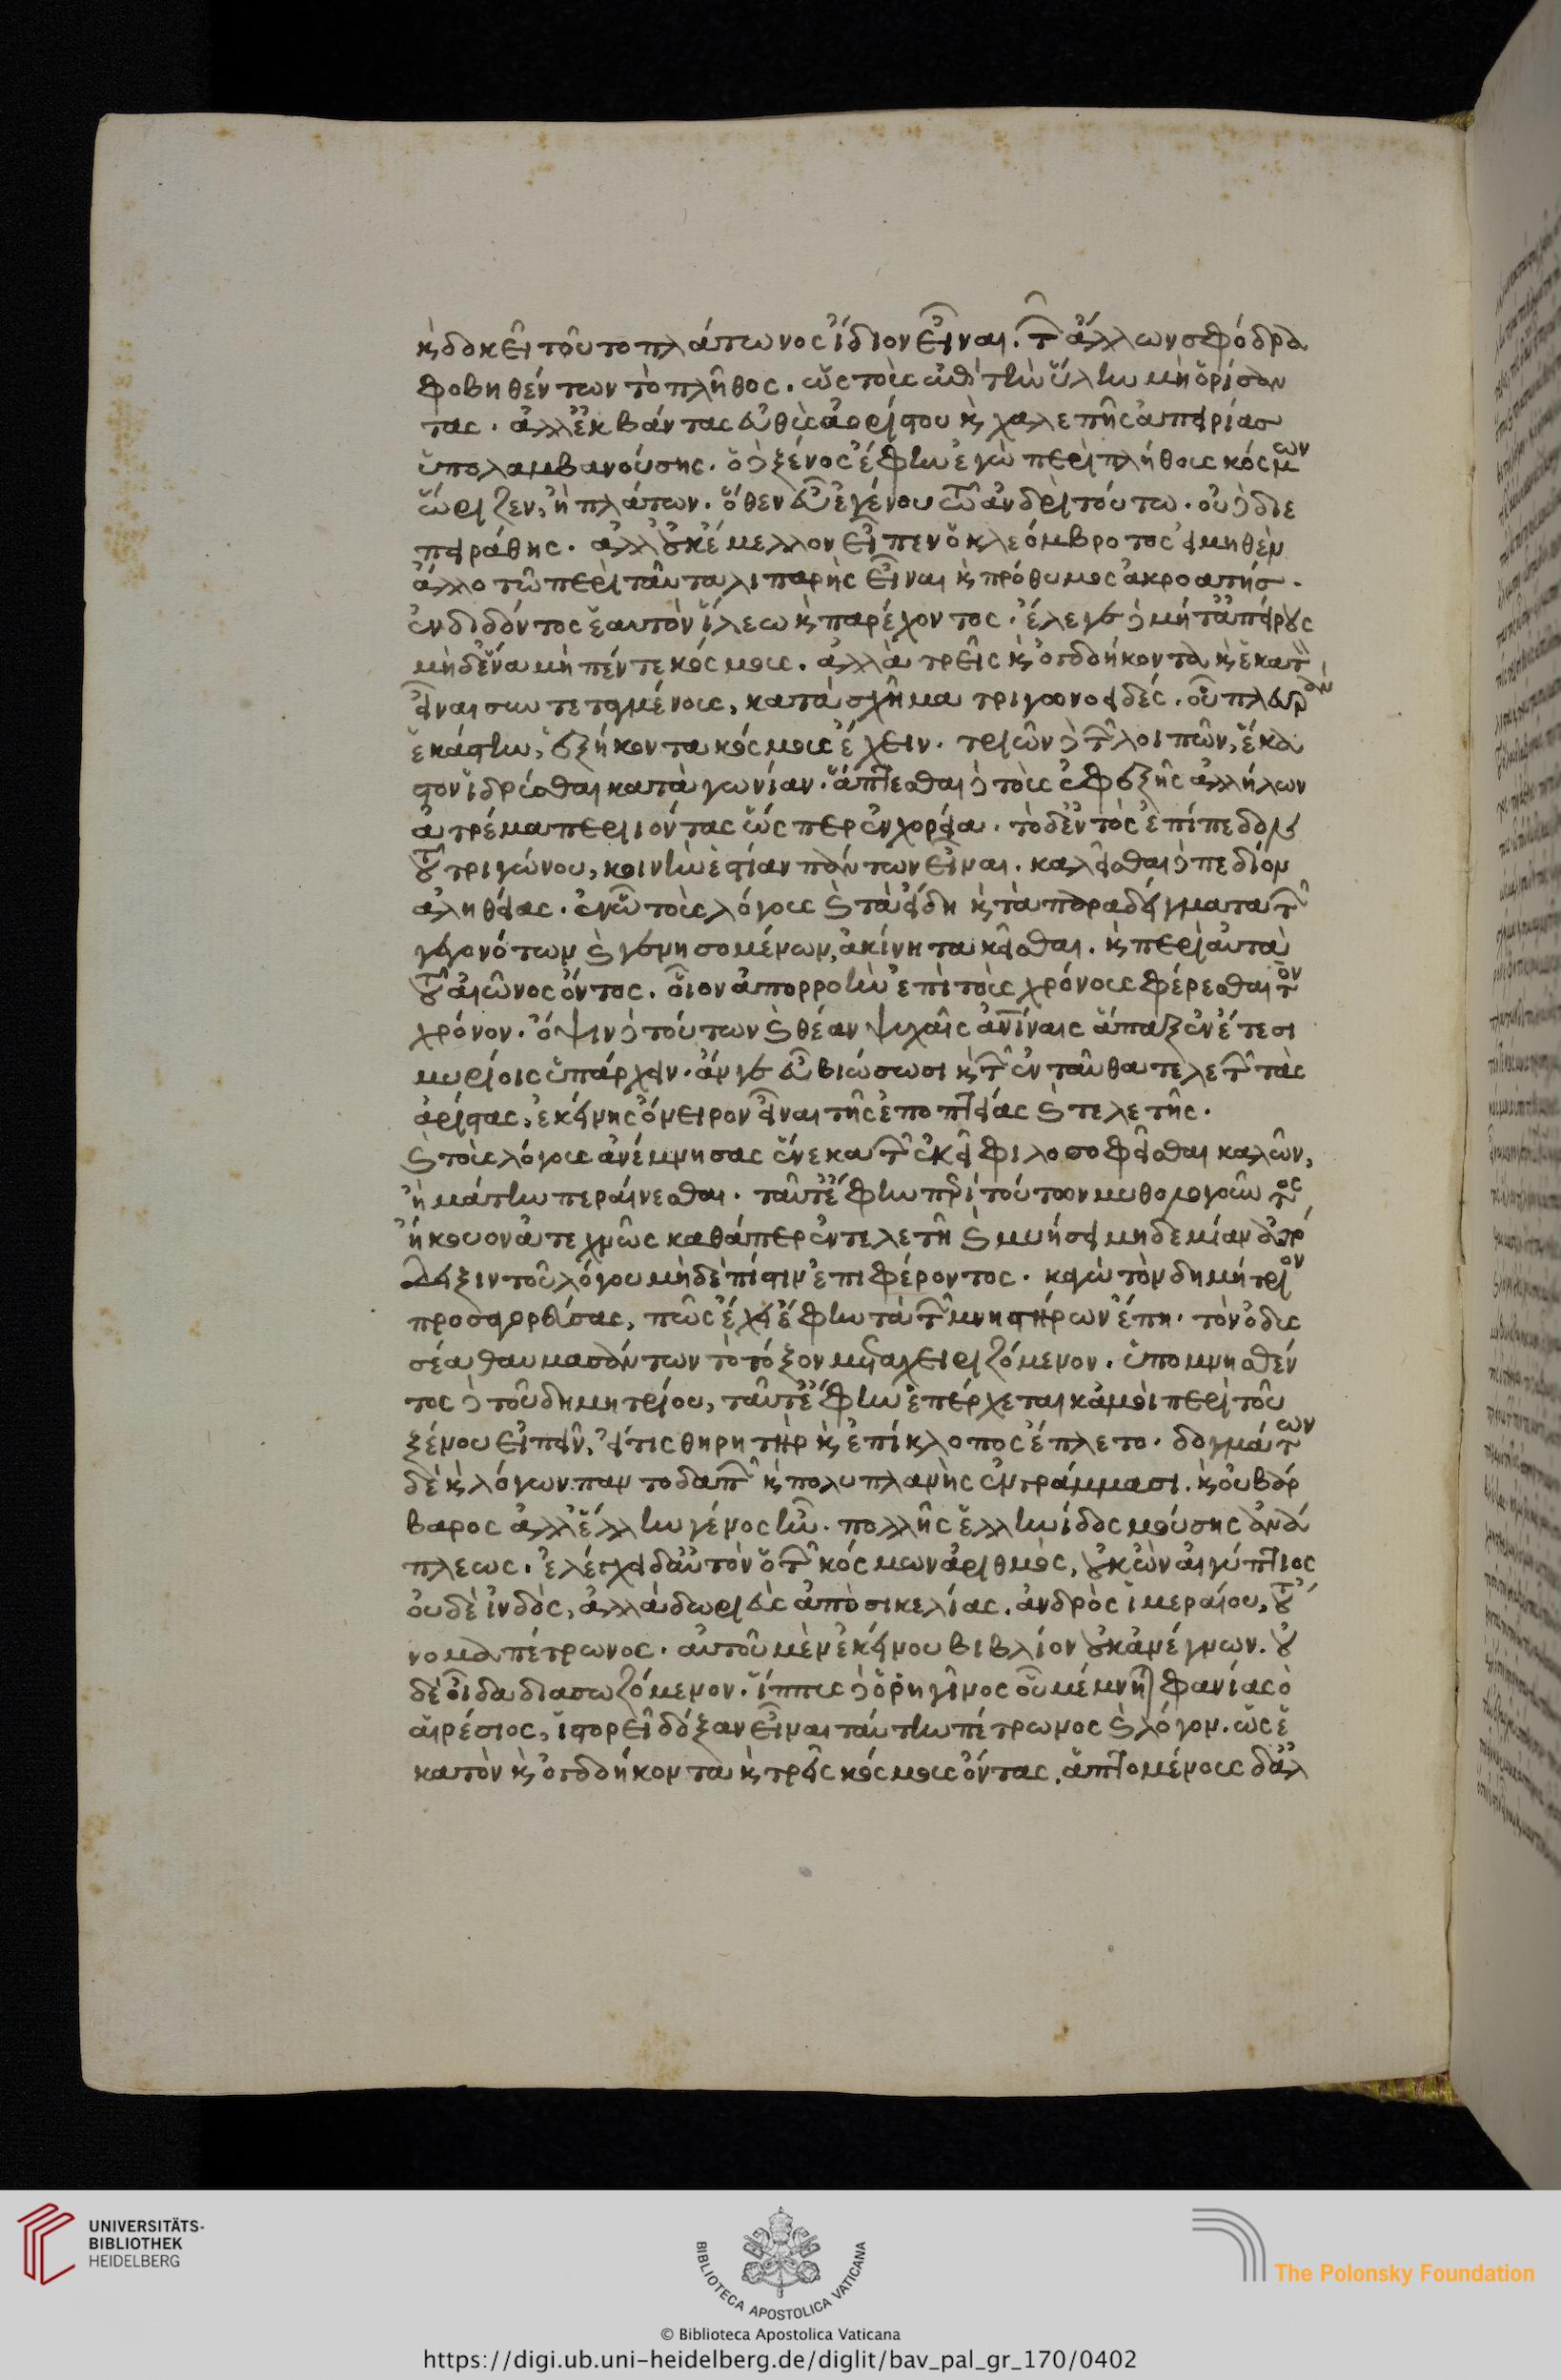 κ̀ δοκεῖ τοῦτο πλάτωνος ἴδιον εἶναι. τῶν ἄλλων σφόδρα
φοβηθέντων τὸ πλῆθος. ὡς τοὺς εἰς τὴν ὕλην μὴ ὁρίσαν
τας. ἀλλ' ἐκβάντας εὐθὺς ἀορίστου κ̀ χαλεπῆς ἀπειρίας
ὑπολαμβανούσης. ὁ δὲ ξένος ἔφην ἐγὼ περὶ πλήθους κόσμων
ὥριζεν, ἢ πλάτων. ὅθεν συνεγένου τῶ ἀνδρὶ τούτω. οὐ διε
πειράθης. ἀλλ' οὐκ ἔμελλον εἶπεν ὁ κλεόμβροτος εἰ μηθὲν
ἄλλο τῶ περὶ ταῦτα λιπαρὴς εἶναι κ̀ πρόθυμος ἀκροατής.
ἐνδιδόντος ἑαυτὸν ἵλεω κ̀ παρέχοντος. ἔλεγε δὲ μήτ' ἀπείρους
μὴδ' ἕνα μὴ πέντε κόσμους. ἀλλὰ τρεῖς κ̀ ὀγδοήκοντα κ̀ ἑκατὸν
εἶναι συντεταγμένους, κατὰ σχῆμα τριγωνοειδές. οὗ πλευρὰν
ἑκάστην, ἑξήκοντα κόσμους ἔχειν. τριῶν δὲ τῶν λοιπῶν, ἕκα
στον ἱδρύσθαι κατὰ γωνίαν. ἅπτεσθαι δὲ τοὺς ἐφεξῆς ἀλλήλων
ἀτρέμα περιιόντας ὥσπερ ἐν χορεία. τὸ δ' ἐντὸς ἐπίπεδον
τοῦ τριγώνου, κοινὴν ἑστίαν πάντων εἶναι. καλεῖσθαι δὲ πεδίον
ἀληθείας. ἐν ὧ τοὺς λόγους καὶ τὰ εἴδη κ̀ τὰ παραδείγματα τῶν
γεγονότων καὶ γενησομένων, ἀκίνητα κεῖσθαι. κ̀ περὶ αὐτὰ
τοῦ αἰῶνος ὄντος. οἷον ἀπορροὴν ἐπὶ τοὺς χρόνους φέρεσθαι τὸν
χρόνον. ὄψιν δὲ τούτων καὶ θέαν ψυχαῖς ἀνθρωπίναις ἅπαξ ἐν ἔτεσι
μυρίοις ὑπάρχειν. ἄν γε εὖ βιώσωσι κ̀ τῶν ἐνταῦθα τελετῶν τὰς
ἀρίστας, ἐκείνης ὄνειρον εἶναι τῆς ἐποπτείας καὶ τελετῆς.
καὶ τοὺς λόγους ἀνέμνησας ἕνεκα τῶν ἐκεῖ φιλοσοφεῖσθαι καλῶν,
ἢ μάτην περαίνεσθαι. ταῦτ' ἔφην περὶ τούτων μυθολογοῦντος
ἤκουον ἀτεχνῶς καθάπερ ἐν τελετῆ καὶ μυήσει μηδεμίαν ἀπό
δειξιν τοῦ λόγου μὴδὲ πίστιν ἐπιφέροντος. καγὼ τὸν δημήτριον
προσαγορεύσας, πῶς ἔχει ἔφην τὰ τῶν μνηστήρων ἔπη. τὸν ὀδυς
σέα θαυμασάντων τὸ τόξον μεταχειριζόμενον. ὑπομνησθέν
τος δὲ τοῦ δημητρίου, ταῦτ' ἔφην ἐπέρχεται κἀμοὶ περὶ τοῦ
ξένου εἰπεῖν, εἴ τις θηρητὴρ κ̀ ἐπίκλοπος ἔπλετο. δογμάτων
δὲ κ̀ λόγων παντοδαπῶν κ̀ πολυπλανὴς ἐν γράμμασι. κ̀ οὐ βάρ
βαρος ἀλλ' ἕλλην γένος ἦν. πολλῆς ἑλληνίδος μούσης ἀνά
πλεως. ἐλέγχει δ' αὐτὸν ὁ τῶν κόσμων ἀριθμὸς, οὐκ ὢν αἰγύπτιος
οὐδὲ ἰνδὸς, ἀλλὰ δωριεὺς ἀπὸ σικελίας. ἀνδρὸς ἱμεραίου, τοὔ
νομα πέτρωνος. αὐτοῦ μὲν ἐκείνου βιβλίον οὐκ ἀνέγνων. οὐ
δὲ οἶδα διασωζόμενον. ἵππυς δὲ ὁ ῥηγῖνος οὗ μέμνηται φανίας ὁ
αἱρέσιος, ἱστορεῖ δόξαν εἶναι ταύτην πέτρωνος καὶ λόγον. ὡς ἑ
κατὸν κ̀ ὀγδοήκοντα κ̀ τρεῖς κόσμους ὄντας, ἁπτομένους δ' ἀλ
UNIVERSITÄTS-
BIBLIOTHEK
HEIDELBERG
BIBLIOTECA APOSTOLICA VATICANA
The Polonsky Foundation
© Biblioteca Apostolica Vaticana
https://digi.ub.uni-heidelberg.de/diglit/bav_pal_gr_170/0402